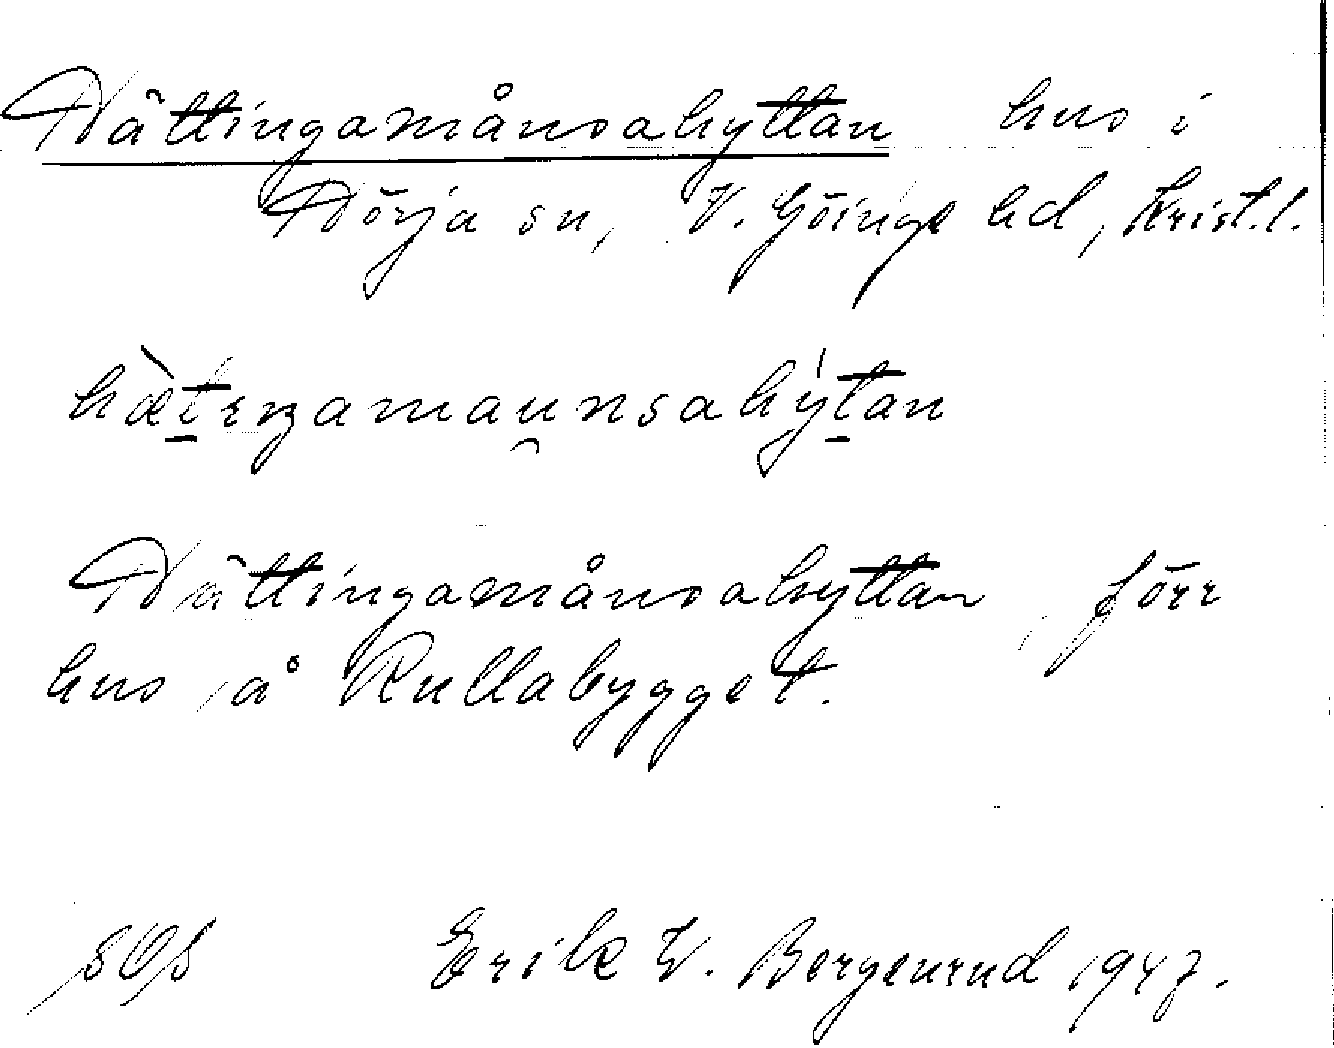 Hättingamånsahyttan hus i
Hörja sn, V. Göinge hd, Krist.l.
hæ̀tiŋamau̯nsahýtan
Hättingamånsahyttan, förr
hus å Rullabygget.
Erik W. Bergenrud 1947.